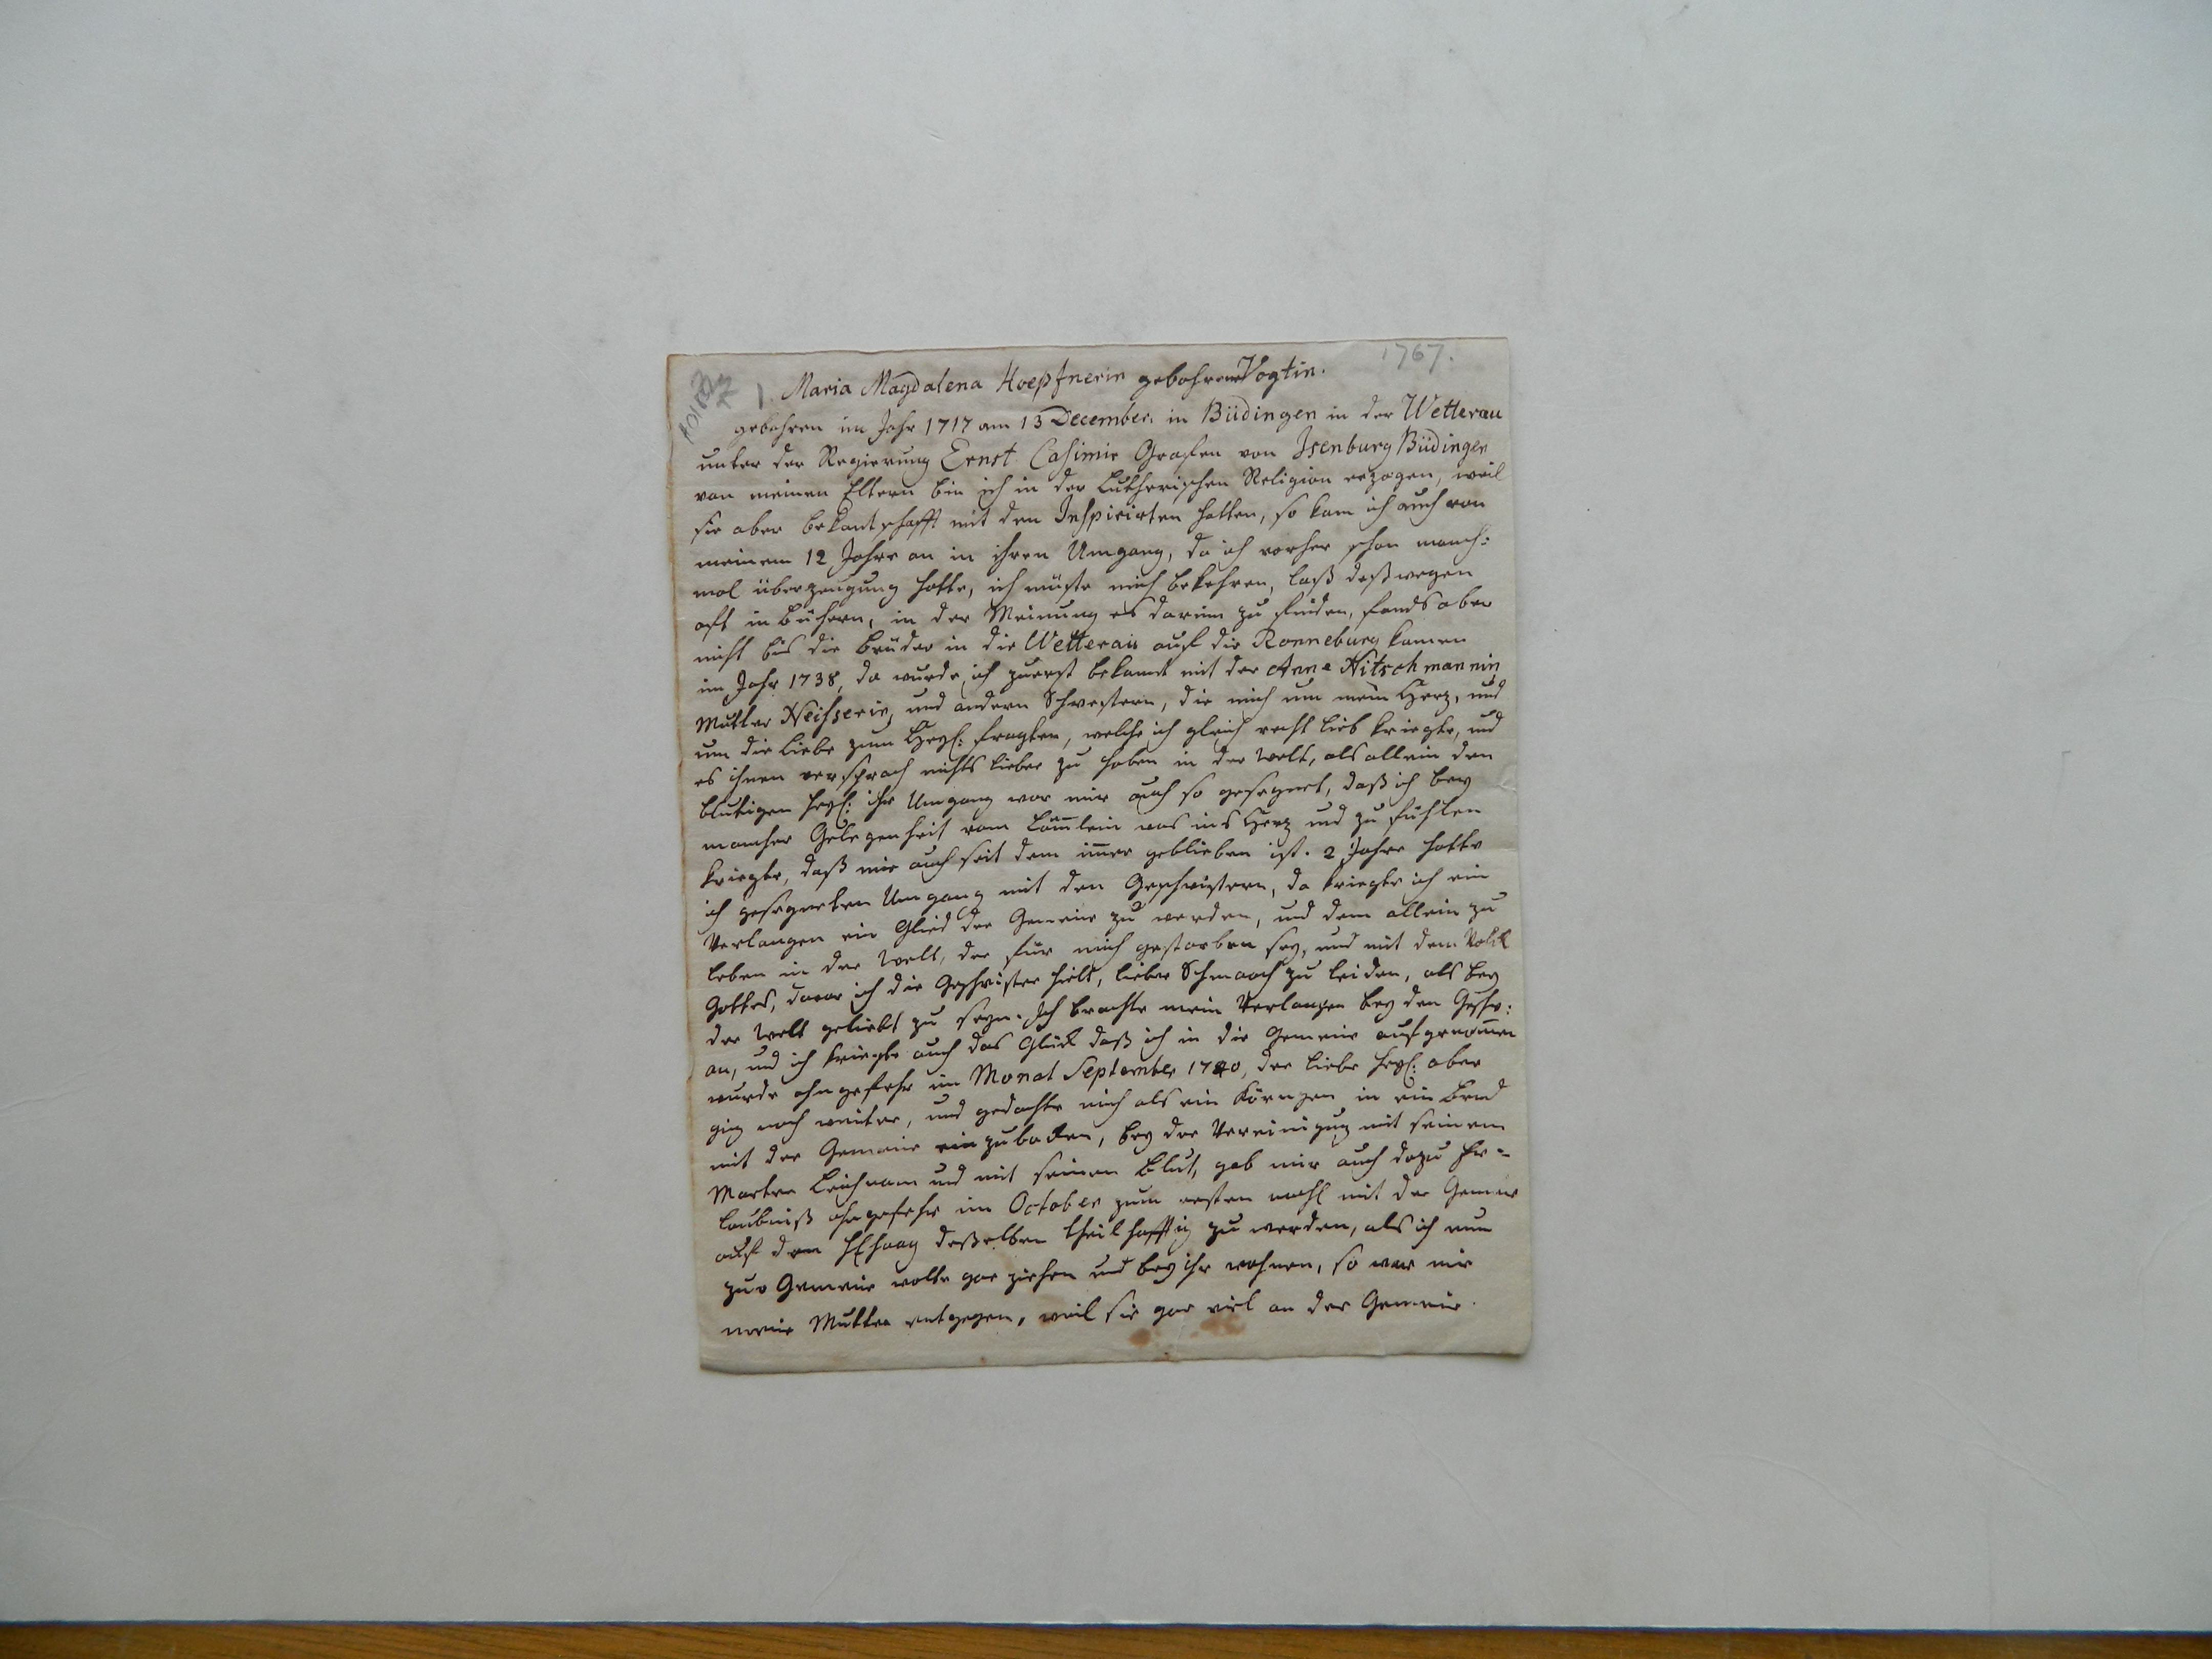 1767.
1. Maria Magdalena Hoepfnerin gebohrene Vogtin.
gebohren im Jahr 1717 am 13 December in Büdingen in der Wetterau
unter der Regierung Ernst Casimir Grafen von Isenburg Büdingen
von meinen Eltern bin ich in der Lutherischen Religion erzogen, weil
sie aber bekantschafft mit den Inspirirten hatten, so kam ich auch von
meinem 12 Jahre an in ihren Umgang, da ich vorher schon manch:
mal überzeugung hatte, ich müste mich bekehren, laß deßwegen
oft in büchern, in der Meinung es darinn zu finden, fands aber
nicht bis die brüder in die Wetterau auf die Ronneburg kamen
im Jahr 1738, da wurde ich zuerst bekannt mit der Anna Nitschmannin
Mutter Neisserin, und andern Schwestern, die mich um mein Herz, und
um die liebe zum Heyl: fragten, welche ich gleich recht lieb kriegte, und
es ihnen versprach nichts lieber zu haben in der welt, als allein den
blutigen Heyl: ihr Umgang war mir auch so gesegnet, daß ich bey
mancher Gelegenheit vom Lämlein was ins Herz und zu fühlen
kriegte, daß mir auch seit dem imer geblieben ist. 2 Jahre hatte
ich gesegneten Umgang mit den Geschwistern, da kriegte ich ein
Verlangen ein Glied der Gemeine zu werden, und dem allein zu
leben in der welt, der für mich gestorben sey, und mit dem Volk
Gottes, davor ich die Geschwister hielt, lieber Schmach zu leiden, als bey
der welt geliebt zu seyn. Ich brachte mein Verlangen bey den Geschw:
an, und ich kriegte auch das Glück daß ich in die Gemeine aufgenomen
wurde ohngefehr im Monat September 1740, der liebe Heyl: aber
ging noch weiter, und gedachte mich als ein Körngen in ein brod
mit der Gemeine einzubacken, bey der Vereinigung mit seinem
Marter leichnam und mit seinem blut, gab mir auch dazu Er=
laubniß ohngefehr im October zum ersten mahl mit der Gemeine
auf dem HHaag deßelben theilhafftig zu werden, als ich nun
zur Gemeine wolte gar ziehen und bey ihr wohnen, so war mir
meine Mutter entgegen, weil sie gar viel an der Gemeine